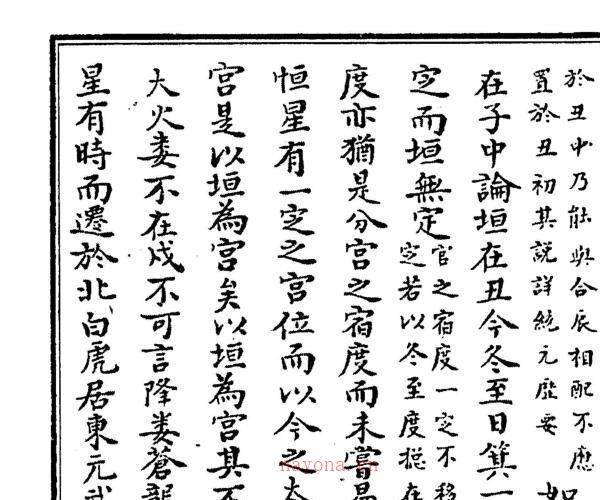 於丑中乃能與合辰相配不應
置於丑初其說詳統元歷要
在子中論垣在丑今冬至日箕一
定而垣無定
官之宿度一定不移
定若以冬至度揔在
度亦猶是分宮之宿度而未嘗易
恒星有一定之宮位而以今之太
宮是以垣為宮矣以垣為宮其不
大火婁不在戌不可言降婁蒼龍
星有時而遷於北白虎居東元武
nayona.cn